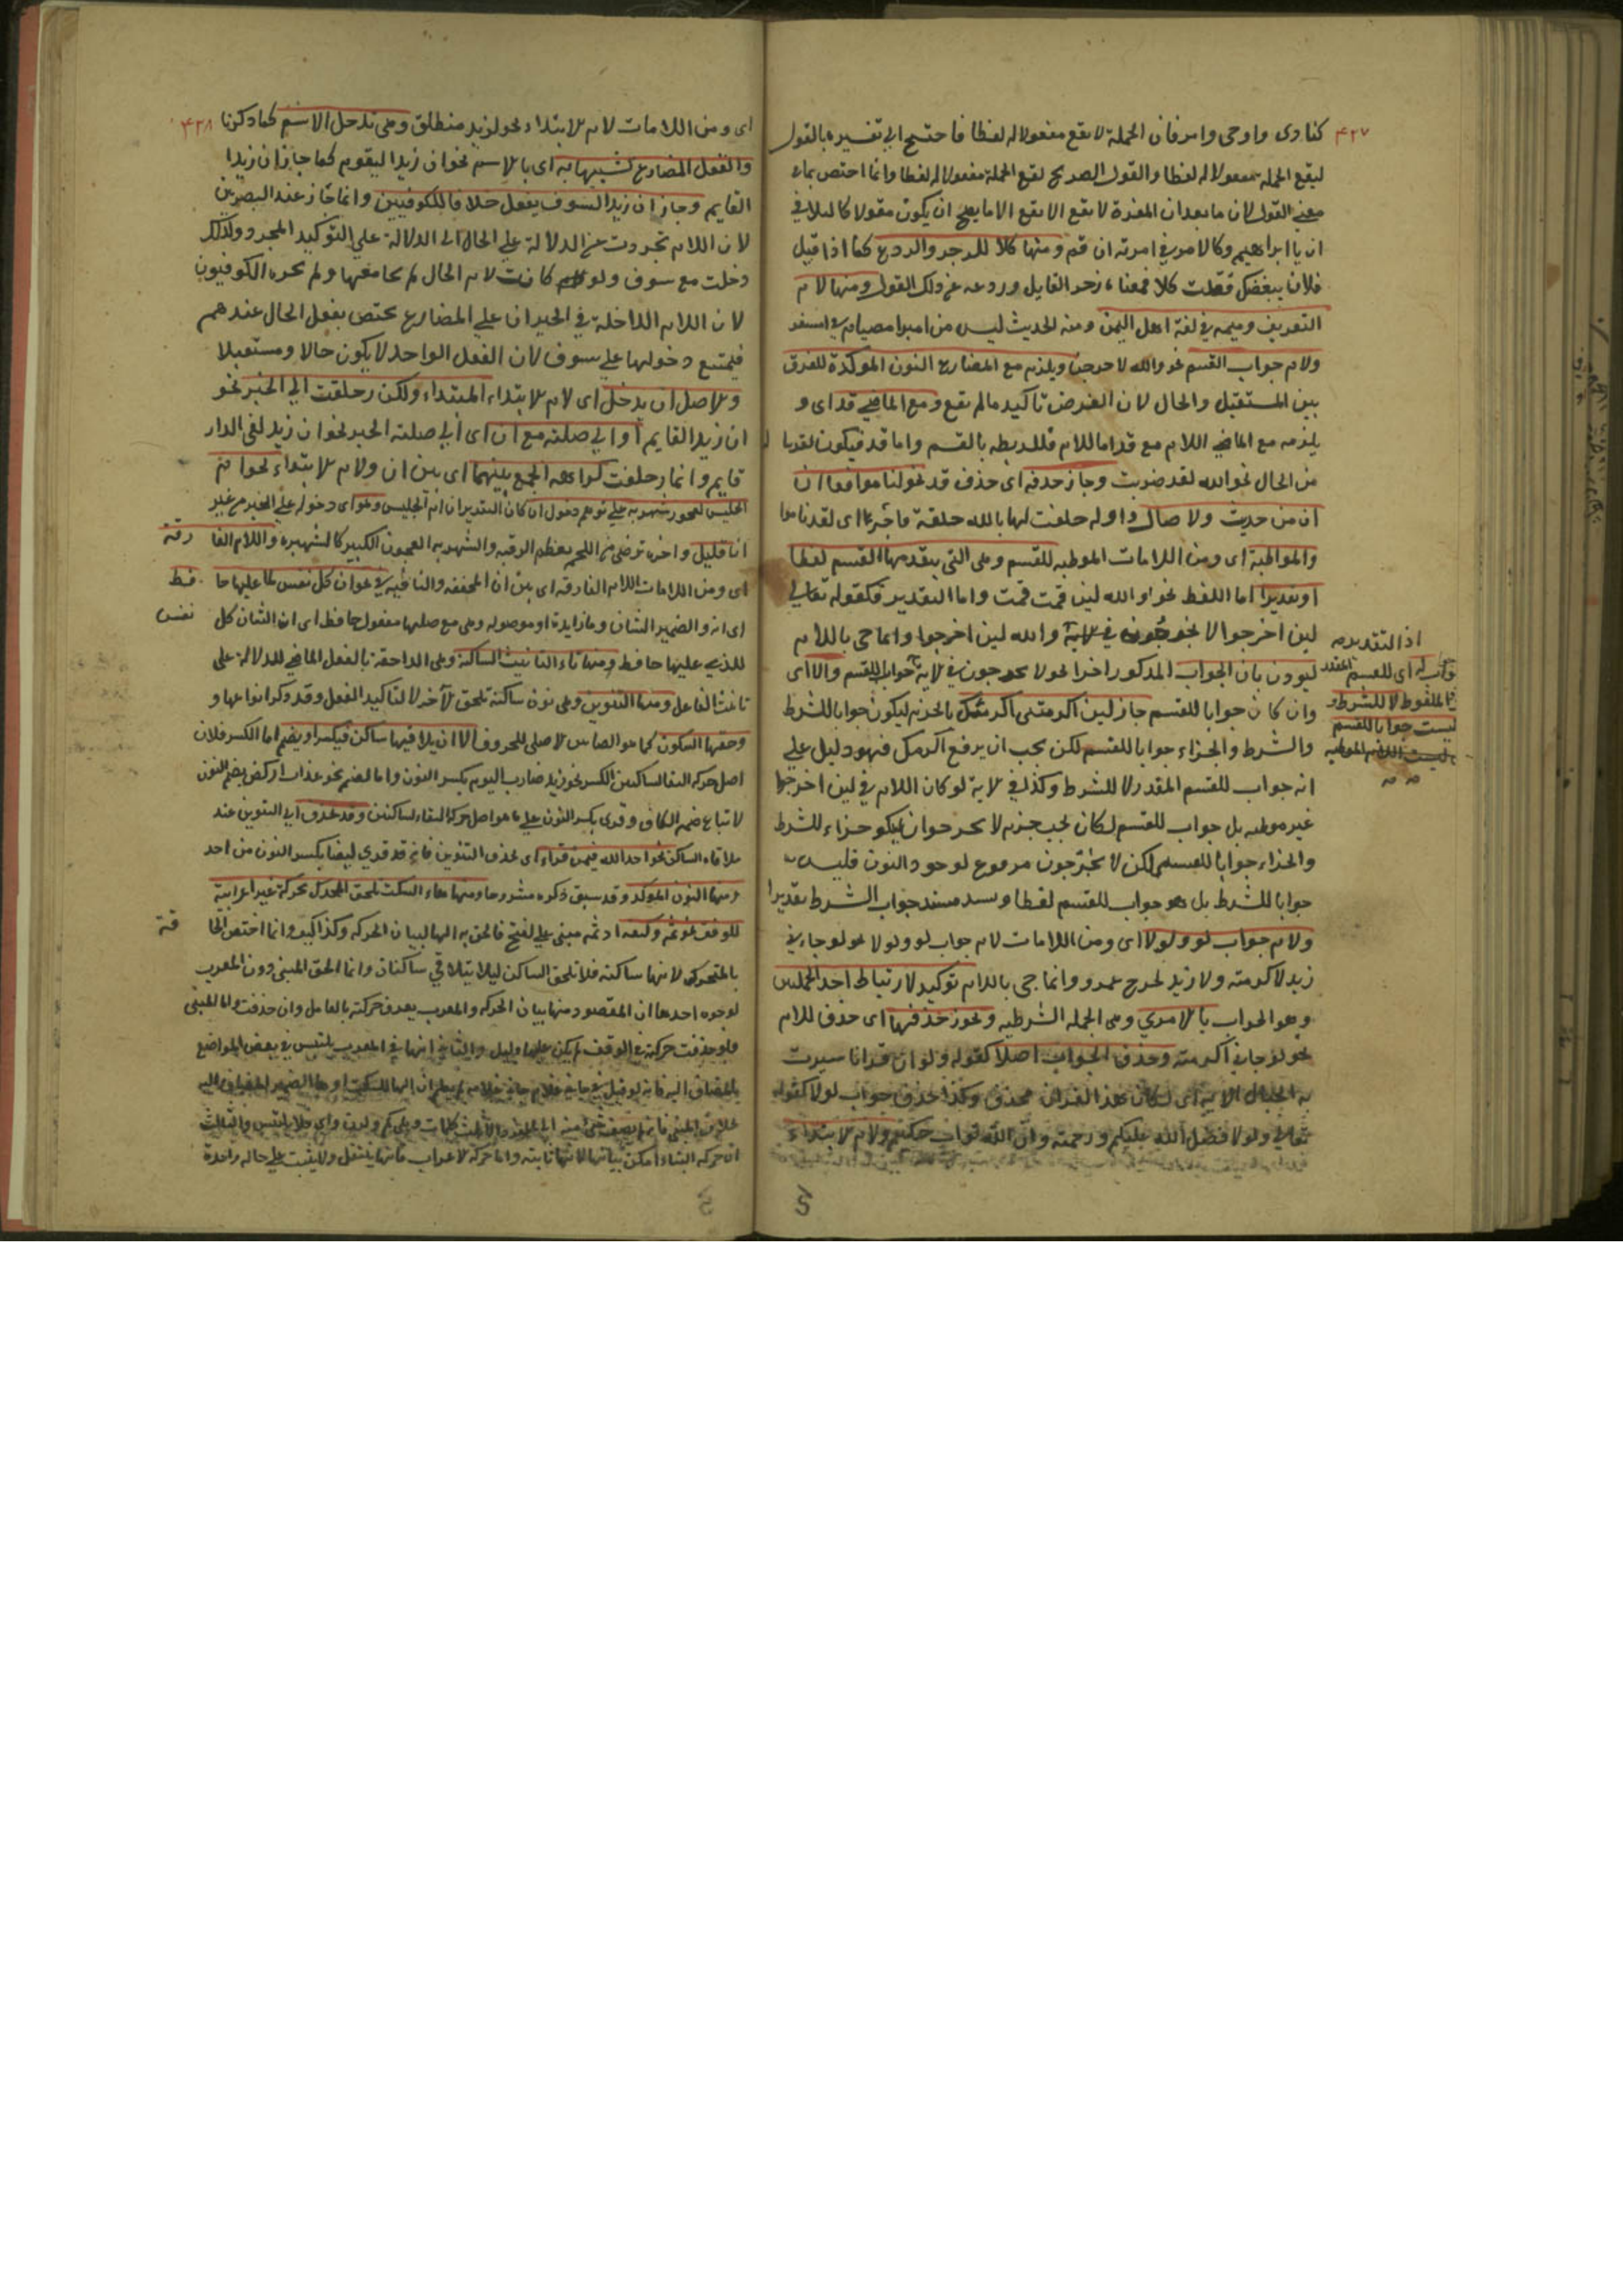 ٤٢٧
كنادى واوحى وامر فان الجملة لا تقع مفعولا له لفظا فاحتيج الى تفسيره بالقول
ليقع الجملة مفعولا له لفظا والقول الصريح تقع الجملة مفعولا له لفظا وانما اختص بما
معنى القول لان ما بعد ان المفسرة لا تقع الا ما يصح ان يكون مقولا
ان يا ابراهيم وكالامر في امرته ان قم ومنها كلا للزجر والردع كما اذا قيل
فلان يبغضك فقلت كلا فمعناه زجر القايل وردعه عن ذلك القول ومنها لام
التعريف وميمه في لغة اهل اليمن ومنه الحديث ليس من امبر امصيام في امسفر
ولام جواب القسم نحو والله لاخرجن ويلزم مع المضارع النون الموكدة للفرق
بين المستقبل والحال لان الغرض تاكيد ما لم يقع ومع الماضي قد اى و
يلزمه مع الماضي اللام مع قد اما اللام فللربطه بالقسم واما قد فيكون لقربها
من الحال نحو والله لقد ضربت وجاز حذفه اى حذف قد نحو لناموا فما ان
ان من حديث ولا صال واوله حلفت لها بالله حلفة فاجر اى لقد ناموا
والموطية اى ومن اللامات الموطيه للقسم وهى التى يتقدمها القسم لفظا
او تقديرا اما اللفظ نحو والله لين قمت قمت واما التقدير فكقوله تعالى
لين اخرجوا لا يخرجون في لاية والله لين اخرجوا وانما جى باللام
ليوذن بان الجواب المذكور اخرا نحو لا يخرجون في لاية جواب للقسم والا اى
وان كان جوابا للقسم جاز لين اكرمتنى اكرمتك بالجزم ليكون جوابا للشرط
والشرط والجزاء جوابا للقسم لكن يجب ان يرفع اكرمك فهو دليل على
انه جواب للقسم المقدر لا للشرط وكذا في لاية لو كان اللام في لين اخرجوا
غير موطيه بل جواب للقسم لكان يجب جزم لا يخرجون ليكون جزاء للشرط
والجزاء جوابا للقسم لكن لا يخرجون مرفوع لوجود النون فليس
جوابا للشرط بل هو جواب للقسم لفظا وسد مسد جواب الشرط تقديرا
ولام جواب لو ولولا اى ومن اللامات لام جواب لو ولولا نحو لو جاءني
زيد لاكرمته ولولا زيد لخرج عمرو وانما جى باللام توكيد لارتباط احد الجملتين
وهو الجواب بالاخرى وهى الجملة الشرطيه ويجوز حذفها اى حذف اللام
نحو لو جاني اكرمته وحذف الجواب اصلا كقوله ولو ان قرانا سيرت
به الجبال الاية اى لكان هذا القران فحذف وكذا حذف جواب لولا كقوله
تعالى ولولا فضل الله عليكم ورحمته وان الله تواب حكيم ولام لابتداء
اذ التقدير
اى للقسم المقدر
الملفوظ لا للشرط
ليست جوابا للقسم
٤٢٨
اى ومن اللامات لام لابتداء نحو لزيد منطلق وهى تدخل الاسم كما ذكرنا
والفعل المضارع لشبهها به اى بالاسم نحو ان زيدا ليقوم كما جاز ان زيدا
القايم وجاز ان زيدا لسوف يفعل خلافا للكوفيين وانما جاز عند البصريين
لان اللام تجردت عن الدلالة على الحال الى الدلالة على التوكيد المجرد ولذلك
دخلت مع سوف ولو كانت لام الحال لم يجامعها ولم يجزه الكوفيون
لان اللام الداخلة في الخبر ان على المضارع يختص بفعل الحال عندهم
فيمتنع دخولها على سوف لان الفعل الواحد لا يكون حالا ومستقبلا
ولاصل ان يدخل اى لام لابتداء المبتداء ولكن زحلفت الى الخبر نحو
ان زيدا لقايم او الى صلته مع ان اى الى صلة الخبر نحو ان زيد لفي الدار
قايم وانما زحلفت كراهه الجمع بينهما اى بين ان ولام لابتداء نحو ام
الحليس لعجوز شهربه على توهم دخول ان كان التقدير ان ام الحليس وهو اى دخوله على الخبر من غير
ان قليل واخره ترضى من اللحم بعظم الرقبه والشهربه العجوز الكبيرة كالشهبره واللام الفارقة
اى ومن اللامات اللام الفارقه اى بين ان المخففه والنافيه في نحو ان كل نفس لما عليها حافظ
اى انه والضمير الشان وما زايدة او موصوله وهى مع صلتها مفعول حافظ اى ان الشان كل نفس
للذي عليها حافظ ومنها تاء التانيث الساكنة وهى الداحقة بالفعل الماضي للدلالة على
تانيث الفاعل ومنها التنوين وهى نون ساكنة تلحق لآخر لا لتاكيد الفعل وقد ذكر انواعها و
وحقها السكون كما هو القياس لاصلى للحروف الا ان يلاقيها ساكن فيكسر او يضم اما الكسر فلان
اصل حركه التقا الساكنين الكسر نحو زيد ضارب اليوم بكسر النون واما لضم نحو عذاب اركض بضم النون
لاتباع ضمه الكاف وقرى بكسر النون على ما هو اصل حركه التقاء لساكنين وقد يحذف اى التنوين عند
ملاقاه الساكن نحو احد الله فيمن قراء اى بحذف التنوين فانه قد قرى ايضا بكسر النون من احد
ومنها النون الموكد وقد سبق ذكره مشروحا ومنها هاء السكت تلحق المتحرك بحركة غير اعرابية
للوقف نحو ثمه وكيفه اذ ثم مبنى على الفتح فالحق به الها لبيان الحركه وكذا كيف وانما اختص الحاقة
بالمتحرك لانها ساكنه فلا تلحق الساكن ليلا يتلاقى ساكنان وانما الحق المبنى دون المعرب
لوجوه احدها ان المقصود منها بيان الحركه والمعرب يعرف حركته بالعامل وان حذفت واما المبنى
فلو حذفت حركته في الوقف لم يكن عليها دليل والثاني انها في المعرب يلتبس في بعض المواضع
ان حركه البناء امكن بيانها لانها ثابته واما حركه لاعراب فانها ينتقل ولا يثبت على حاله واحدة